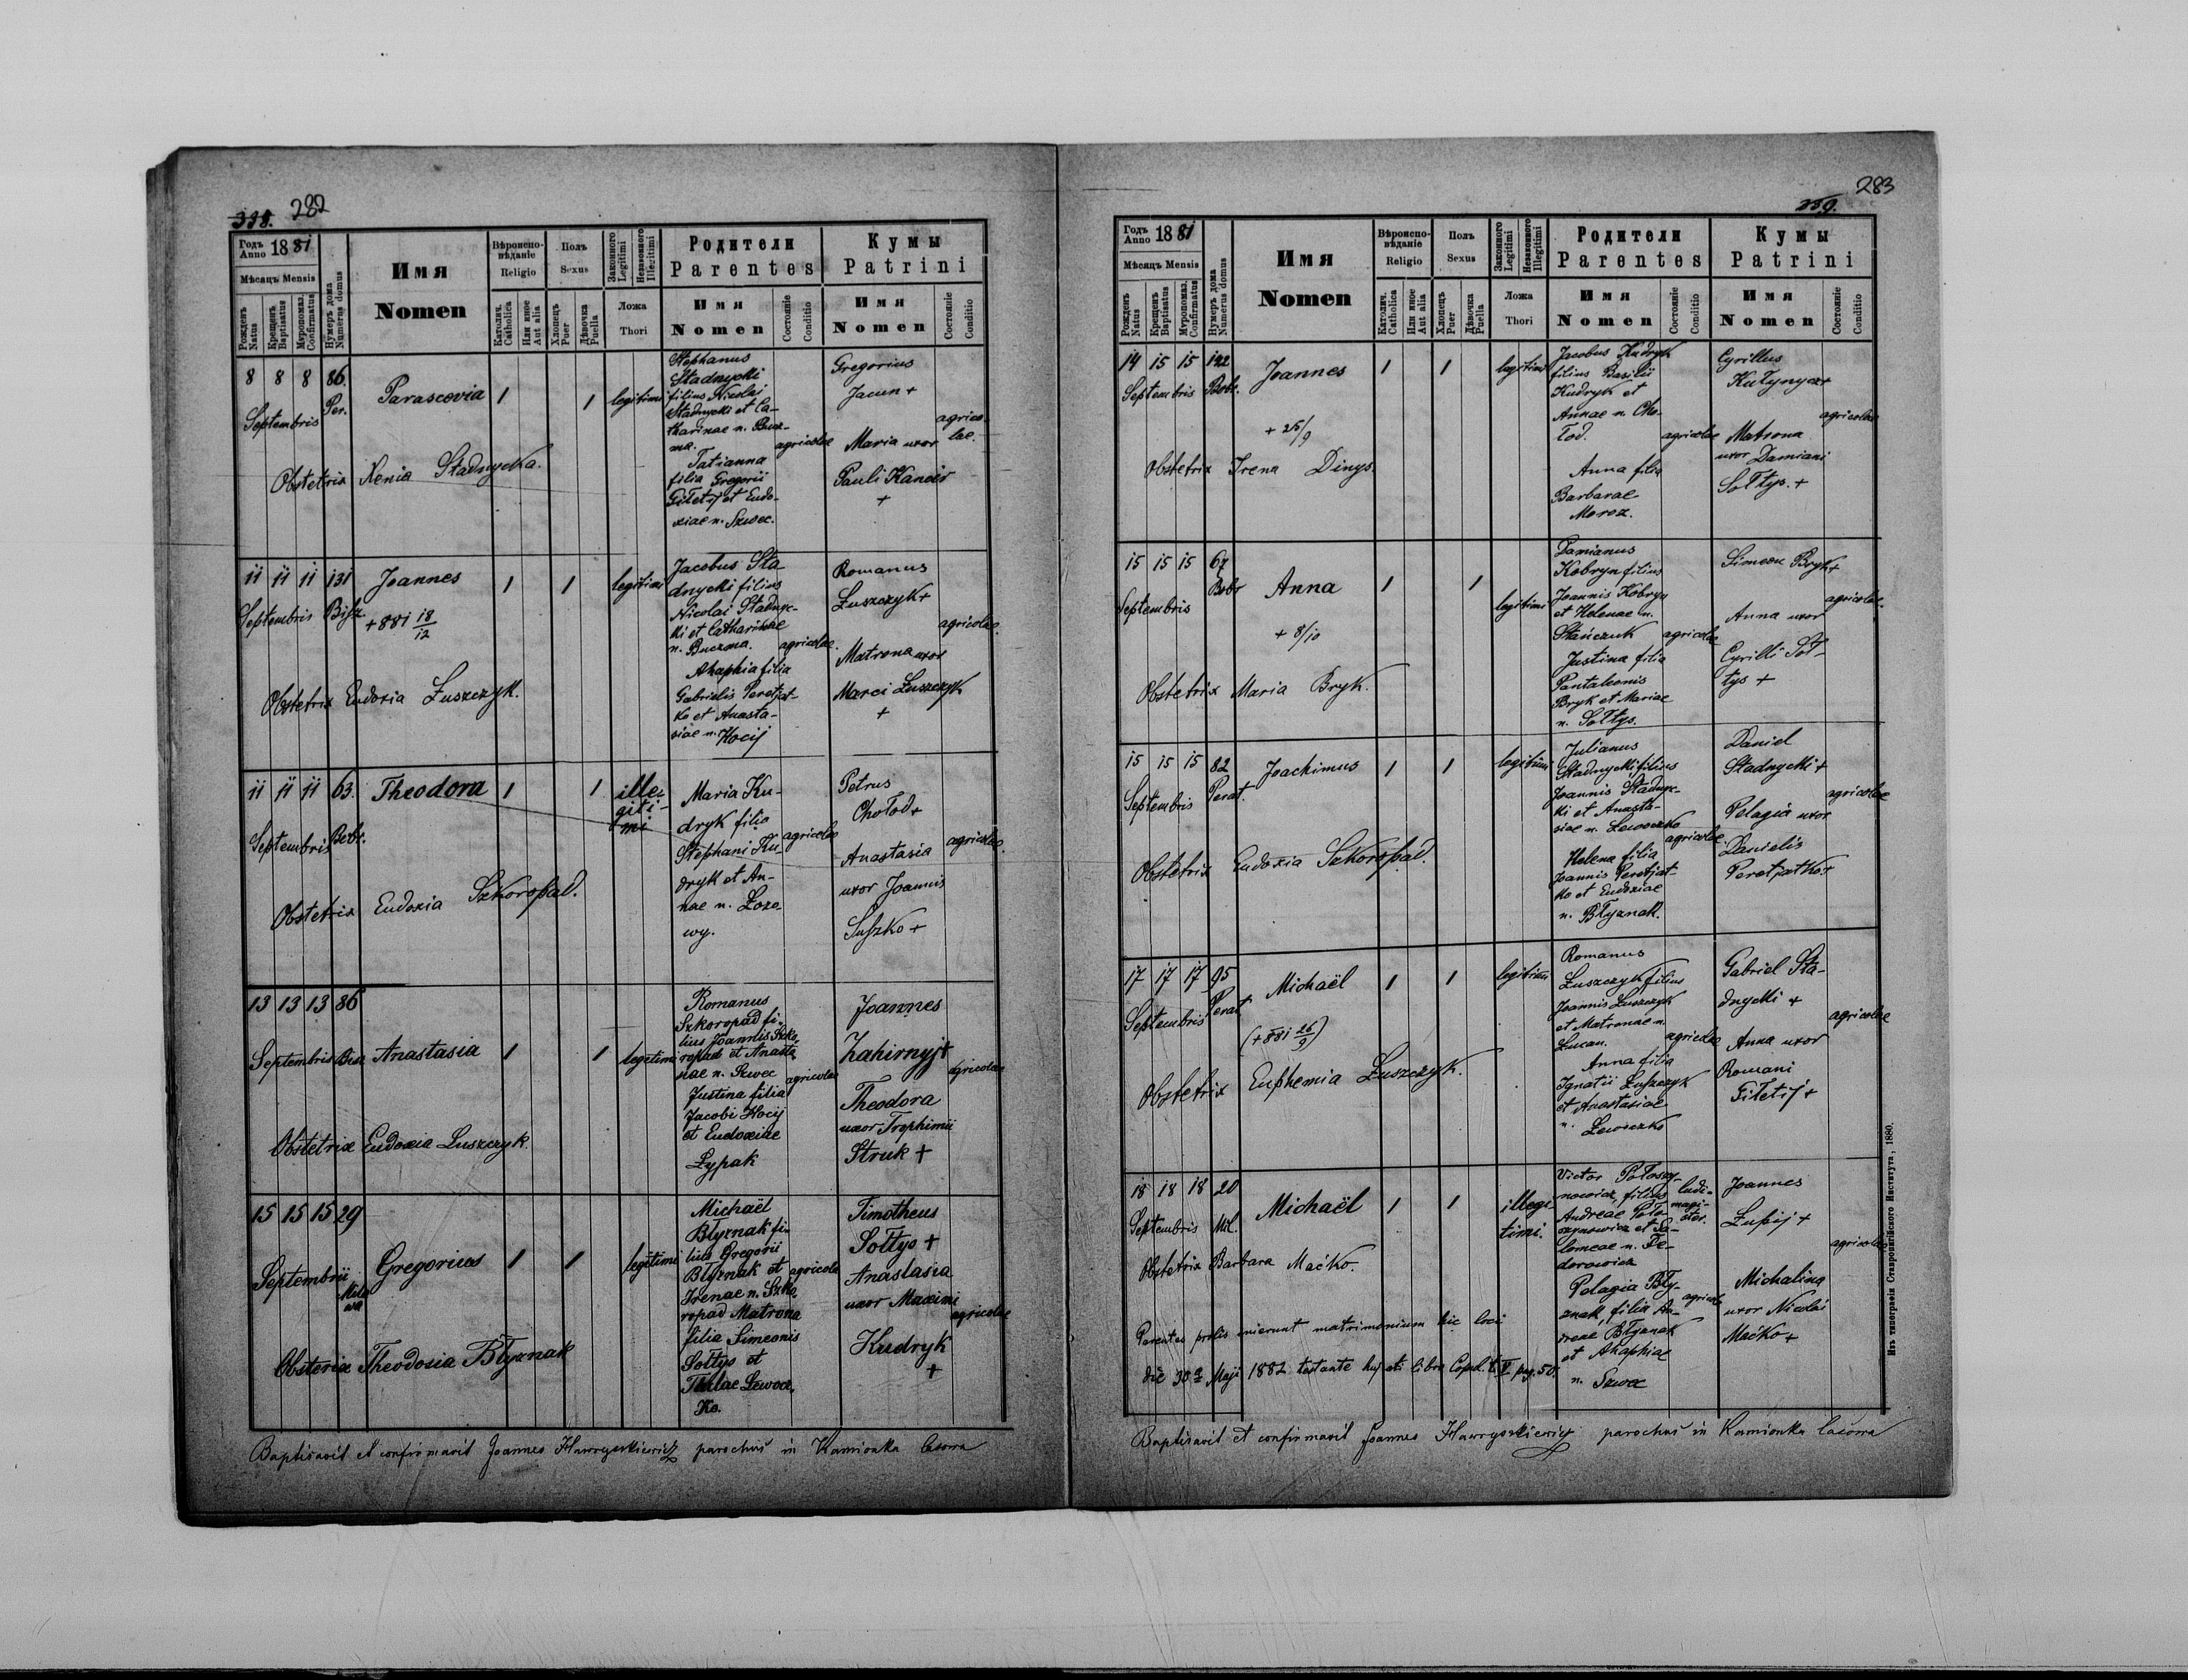 338. 282
Годъ Anno 1881
Мѣсяцъ Mensis
Рожденъ Natus
Крещенъ Baptisatus
Муропомаз. Confirmatus
Нумеръ дома Numerus domus
Имя
Nomen
Вѣроиспо-
вѣданіе
Religio
Католич. Catholica
Или иное Aut alia
Полъ
Sexus
Хлопецъ Puer
Дѣвочка Puella
Законного Legitimi
Незаконного Illegitimi
Ложа
Thori
Родители
Parentes
Имя
Nomen
Состояніе Conditio
Кумы
Patrini
Имя
Nomen
Состояніе Conditio
8 8 8 86.
Septembris Per.
Parascovia 1 1 legitimi
Obstetrix Xenia Stadnycka.
Stephanus
Stadnycki
filius Nicolai
Stadnycki et Ca-
tharinae n. Bucz-
ma. agricolae
Tatianna
filia Gregorii
Filetij et Eudo-
xiae n. Szwec.
Gregorius
Jacun +
Maria uxor
Pauli Kancir
+
agrico-
lae.
11 11 11 131
Septembris Bisz
Joannes 1 1 legitimi
+ 881 18/12
Obstetrix Eudoxia Łuszczyk.
Jacobus Sta
dnycki filius
Nicolai Stadnyc-
ki et Catharinae
n. Buczma. agricolae.
Ahaphia filia
Gabrielis Peretjat-
ko et Anasta-
siae n. Hocij
Romanus
Łuszczyk +
Matrona uxor
Marci Łuszczyk
+
agricolae.
11 11 11 63.
Septembris Bobr.
Theodora 1 1 ille-
giti-
mi
Obstetrix Eudoxia Szkoropad.
Maria Ku-
dryk filia
Stephani Ku-
dryk et An-
nae n. Łozo-
wy.
agricolae
Petrus
Chołod +
Anastasia
uxor Joannis
Suszko +
agricolae.
13 13 13 86
Septembris Bisz
Anastasia 1 1 legitimi
Obstetrix Eudoxia Luszczyk.
Romanus
Szkoropad fi-
lius Joannis Szko-
ropad et Anasta
siae n. Szwec
agricolae
Justina filia
Jacobi Hocij
et Eudoxiae
Łypak
Joannes
Zahirnyj +
Theodora
uxor Trophimii
Struk +
agricolae
15 15 15 29
Septembris Mila
wa
Gregorius 1 1 legitimi
Obstetrix Theodosia Błyznak
Michaël
Błyznak fi-
lius Gregorii
Błyznak et agricola
Irenae n. Szko
ropad Matrona
filia Simeonis
Sołtys et
Theklae Lewocz
ko.
Timotheus
Sołtys +
Anastasia
uxor Maximi
Kudryk
+
agricolae
Baptisavit et confirmavit Joannes Hawryszkiewicz parochus in Kamionka lasowa
283
339.
Годъ Anno 1881
Мѣсяцъ Mensis
Рожденъ Natus
Крещенъ Baptisatus
Муропомаз. Confirmatus
Нумеръ дома Numerus domus
Имя
Nomen
Вѣроиспо-
вѣданіе
Religio
Католич. Catholica
Или иное Aut alia
Полъ
Sexus
Хлопецъ Puer
Дѣвочка Puella
Законного Legitimi
Незаконного Illegitimi
Ложа
Thori
Родители
Parentes
Имя
Nomen
Состояніе Conditio
Кумы
Patrini
Имя
Nomen
Состояніе Conditio
14 15 15 122
Septembris Bobr.
Joannes 1 1 legitimi
+ 25/9
Obstetrix Irena Dinys.
Jacobus Kudryk
filius Basilii
Kudryk et
Annae n. Cho-
łod. agricolae
Anna filia
Barbarae
Moroz.
Cyrillus
Kułynycz +
Matrona
uxor Damiani
Sołtys. +
agricolae
15 15 15 67
Septembris Bobr
Anna 1 1 legitimi
+ 8/10
Obstetrix Maria Bryk.
Damianus
Kobryn filius
Joannis Kobryn
et Helenae n.
Stańczuk agricolae
Justina filia
Pantaleonis
Bryk et Mariae
n. Sołtys.
Simeon Bryk +
Anna uxor
Cyrilli Soł-
tys +
agricolae.
15 15 15 82
Septembris Perat.
Joachimus 1 1 legitimi
Obstetrix Eudoxia Szkoropad.
Julianus
Stadnycki filius
Joannis Stadnyc-
ki et Anasta-
siae n. Lewoczko
agricolae.
Helena filia
Joannis Peretjat-
ko et Eudoxiae
n. Błyznak.
Daniel
Stadnycki +
Pelagia uxor
Danielis
Peretjatko +
agricolae
17 17 17 95
Septembris Perat.
Michaël 1 1 legitimi
(+ 881 26/9)
Obstetrix Euphemia Łuszczyk.
Romanus
Łuszczyk filius
Joannis Łuszczyk
et Matronae n.
Lucan. agricolae
Anna filia
Ignatii Łuszczyk
et Anastasiae
n. Lewoczko
Gabriel Sta-
dnycki +
Anna uxor
Romani
Filetij +
agricolae
18 18 18 20
Septembris Mil.
Michaël 1 1 illegi
timi.
Obstetrix Barbara Maćko.
Parentes prolis inierunt matrimonium hic loci
die 30 Maji 1882 testante hujati libro Copul. t. V pag. 50.
Victor Połoszy-
nowicz, filius ludi-
Andreae Poło- magi-
szynowicz et Sa- ster.
lomeae n. Fe-
dorowicz
Pelagia Bły-
znak, filia An- agricolae
dreae Błyznak
et Ahaphiae
n. Szwec
Joannes
Łupij +
Michalina
uxor Nicolai
Maćko +
agricolae
Baptisavit et confirmavit Joannes Hawryszkiewicz parochus in Kamionka lasowa
Изъ типографіи Ставропигійского Института, 1880.